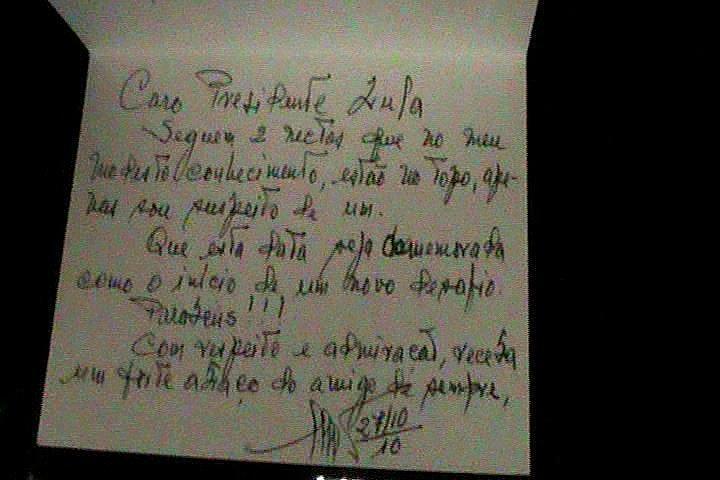 Caro Presidente Lula
Seguem 2 nectos que no meu
modesto conhecimento, estão no topo, ape-
nas sou suspeito de um.
Que esta data seja comemorada
como o início de um novo desafio.
Parabéns!!!
Com respeito e admiracaõ, receba
um forte abraço do amigo de sempre,
27/10
10